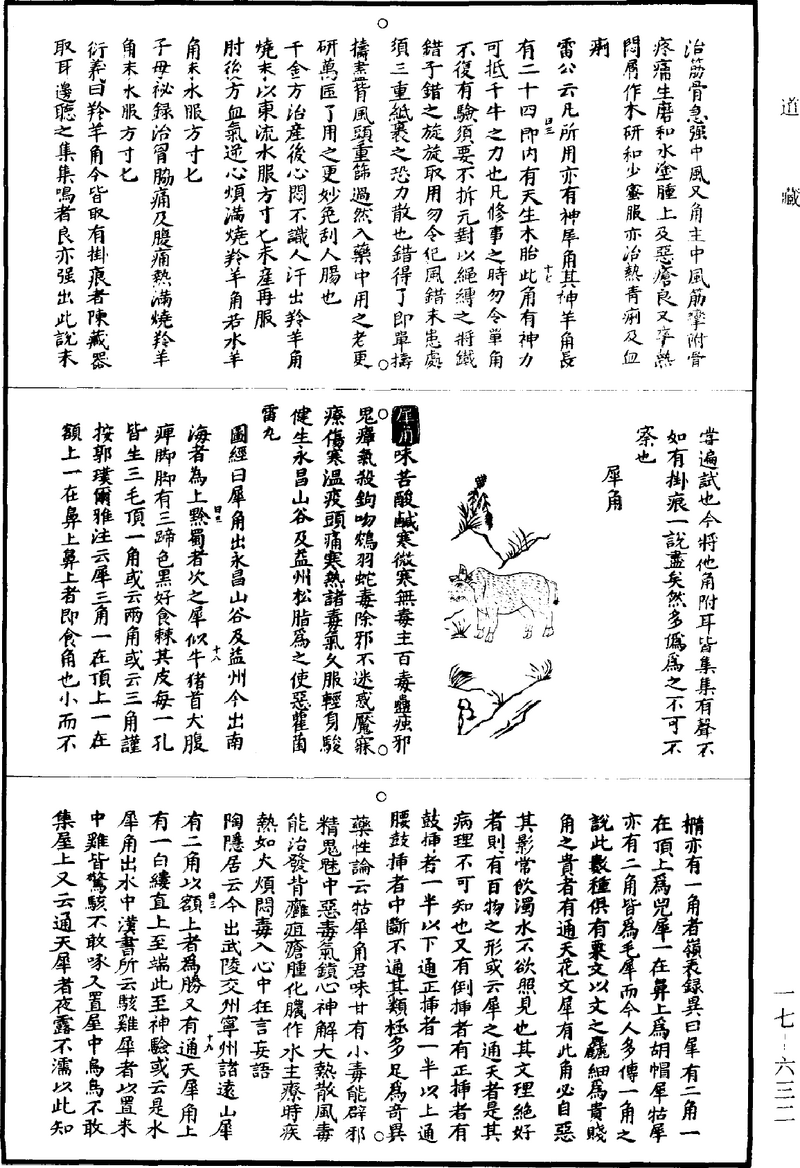 道藏
治筋骨急强中風又角主中風筋攣附骨
疼痛生磨和水塗腫上及惡瘡良又卒熱
悶屑作末研和少蜜服亦治熱青痢及血
痢
雷公云凡所用亦有神犀角其神羊角長
有二十四節內有天生木胎此角有神力
可抵千牛之力也凡修事之時勿令單角
不復有驗須要不拆元對以繩縛之將鐵
錯子錯之旋旋取用勿令犯風錯末盡處
須三重紙裹之恐力散也錯得了即單擣
擣盡背風頭重篩過然入藥中用之老更
研萬匝了用之更妙免刮人腸也
千金方治產後心悶不識人汗出羚羊角
燒末以東流水服方寸匕未產再服
肘後方血氣逆心煩滿燒羚羊角若水羊
角末水服方寸匕
子母祕錄治胷脇痛及腹痛熱滿燒羚羊
角末水服方寸匕
衍義曰羚羊角今皆取有掛痕者陳藏器
取耳邊聽之集集鳴者良亦强出此說未
嘗遍試也今將他角附耳皆集集有聲不
如有掛痕一說盡矣然多僞爲之不可不
察也
犀角
犀角味苦酸鹹寒微寒無毒主百毒蠱疰邪
鬼瘴氣殺鉤吻鴆羽蛇毒除邪不迷惑魘寐
療傷寒溫疫頭痛寒熱諸毒氣久服輕身駿
健生永昌山谷及益州松脂爲之使惡雚菌
雷丸
圖經曰犀角出永昌山谷及益州今出南
海者為上黔蜀者次之犀似牛猪首大腹
痺脚脚有三蹄色黑好食棘其皮每一孔
皆生三毛頂一角或云兩角或云三角謹
按郭璞爾雅注云犀三角一在頂上一在
額上一在鼻上鼻上者即食角也小而不
橢亦有一角者嶺表録異曰犀有二角一
在頂上爲兕犀一在鼻上爲胡帽犀牯犀
亦有二角皆為毛犀而今人多傳一角之
說此數種俱有粟文以文之麤細為貴賤
角之貴者有通天花文犀有此角必自惡
其影常飲濁水不欲照見也其文理絶好
者則有百物之形或云犀之通天者是其
病理不可知也又有倒挿者有正挿者有
鼓挿者一半以下通正挿者一半以上通
腰鼓挿者中斷不通其類極多足為奇異
藥性論云牯犀角君味甘有小毒能辟邪
精鬼魅中惡毒氣鏡心神解大熱散風毒
能治發背癰疽瘡腫化膿作水主療時疾
熱如火煩悶毒入心中狂言妄語
陶隱居云今出武陵交州寧州諸遠山犀
有二角以額上者為勝又有通天犀角上
有一白縷直上至端此至神驗或云是水
犀角出水中漢書所云駭雞犀者以置米
中雞皆驚駭不敢啄又置屋中烏鳥不敢
集屋上又云通天犀者夜露不濡以此知
一七–六三二